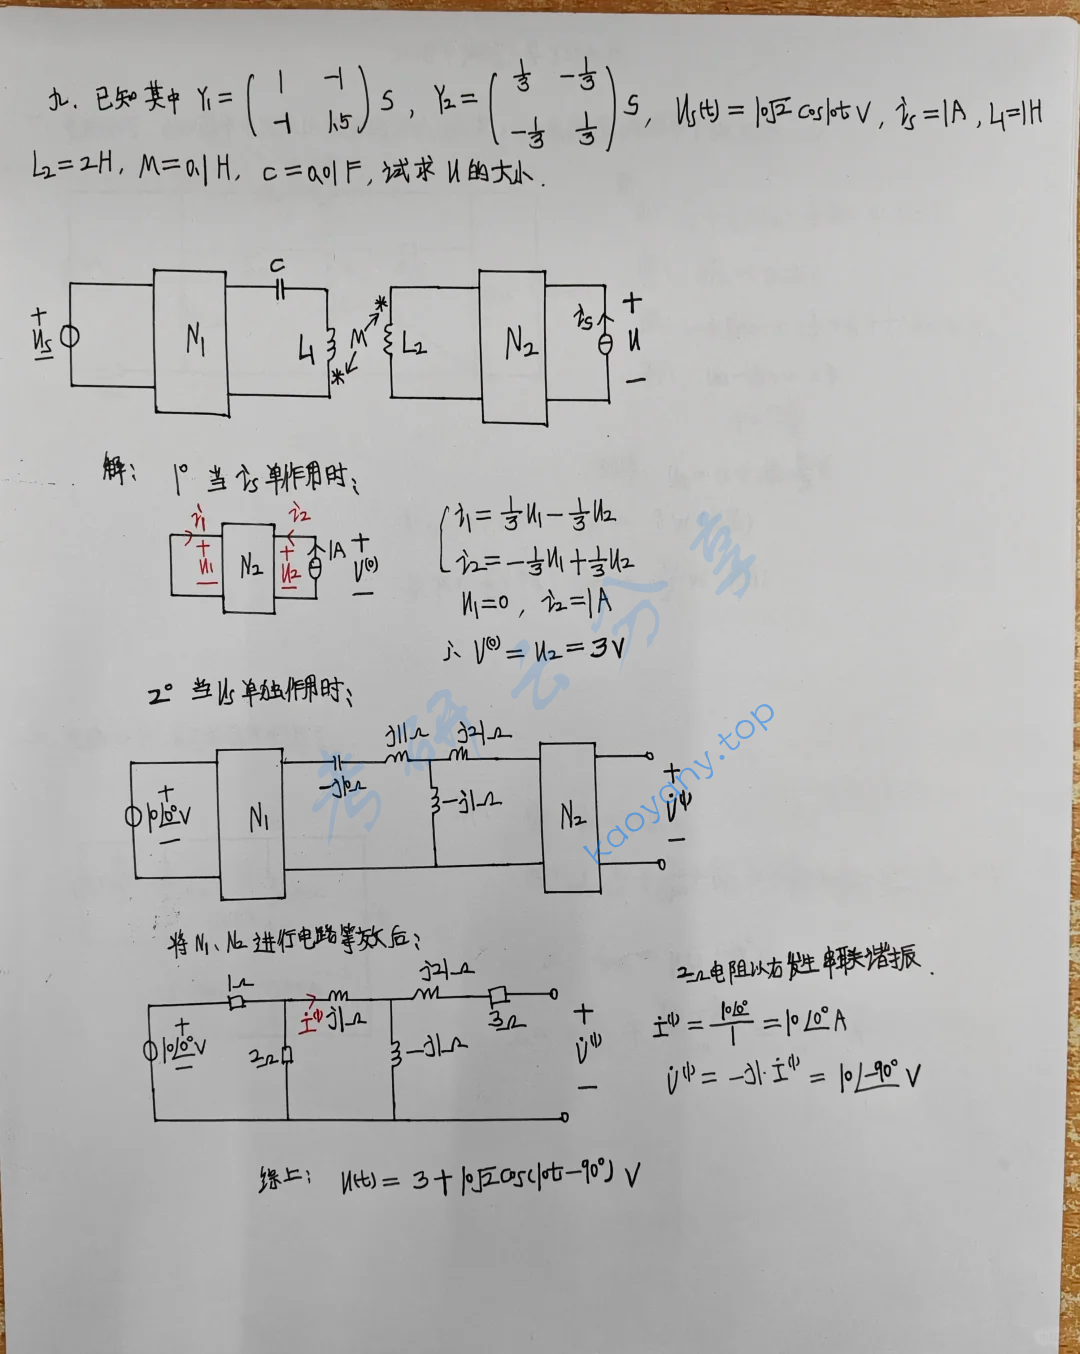 九. 已知其中 Y₁ = (1 -1 -1 1.5) S, Y₂ = (1/3 -1/3 -1/3 1/3) S, Us(t) = 10√2 cos10t V, is = 1A, L₁ = 1H
L₂ = 2H, M = 0.1H, C = 0.01F, 试求 U 的大小.
C
+ Us − N₁ L₁ * M * L₂ N₂ is + U −
解: 1° 当 is 单作用时;
i₁ i₂
+ U₁ − N₂ + U₂ − 1A + U⁽⁰⁾ −
i₁ = 1/3 U₁ − 1/3 U₂
i₂ = −1/3 U₁ + 1/3 U₂
U₁ = 0, i₂ = 1A
∴ U⁽⁰⁾ = U₂ = 3V
2° 当 Us 单独作用时;
j11Ω j21Ω
-j10Ω
+ 10∠0°V − N₁ -j1Ω N₂ + U̇⁽¹⁾ −
将 N₁、N₂ 进行电路等效后;
1Ω İ⁽¹⁾ j1Ω j21Ω 3Ω
+ 10∠0°V − 2Ω -j1Ω + U̇⁽¹⁾ −
2Ω电阻以右发生串联谐振.
İ⁽¹⁾ = 10∠0°/1 = 10∠0° A
U̇⁽¹⁾ = -j1·İ⁽¹⁾ = 10∠-90° V
综上; U(t) = 3 + 10√2 cos(10t − 90°) V
考研云分享
kaoyany.top